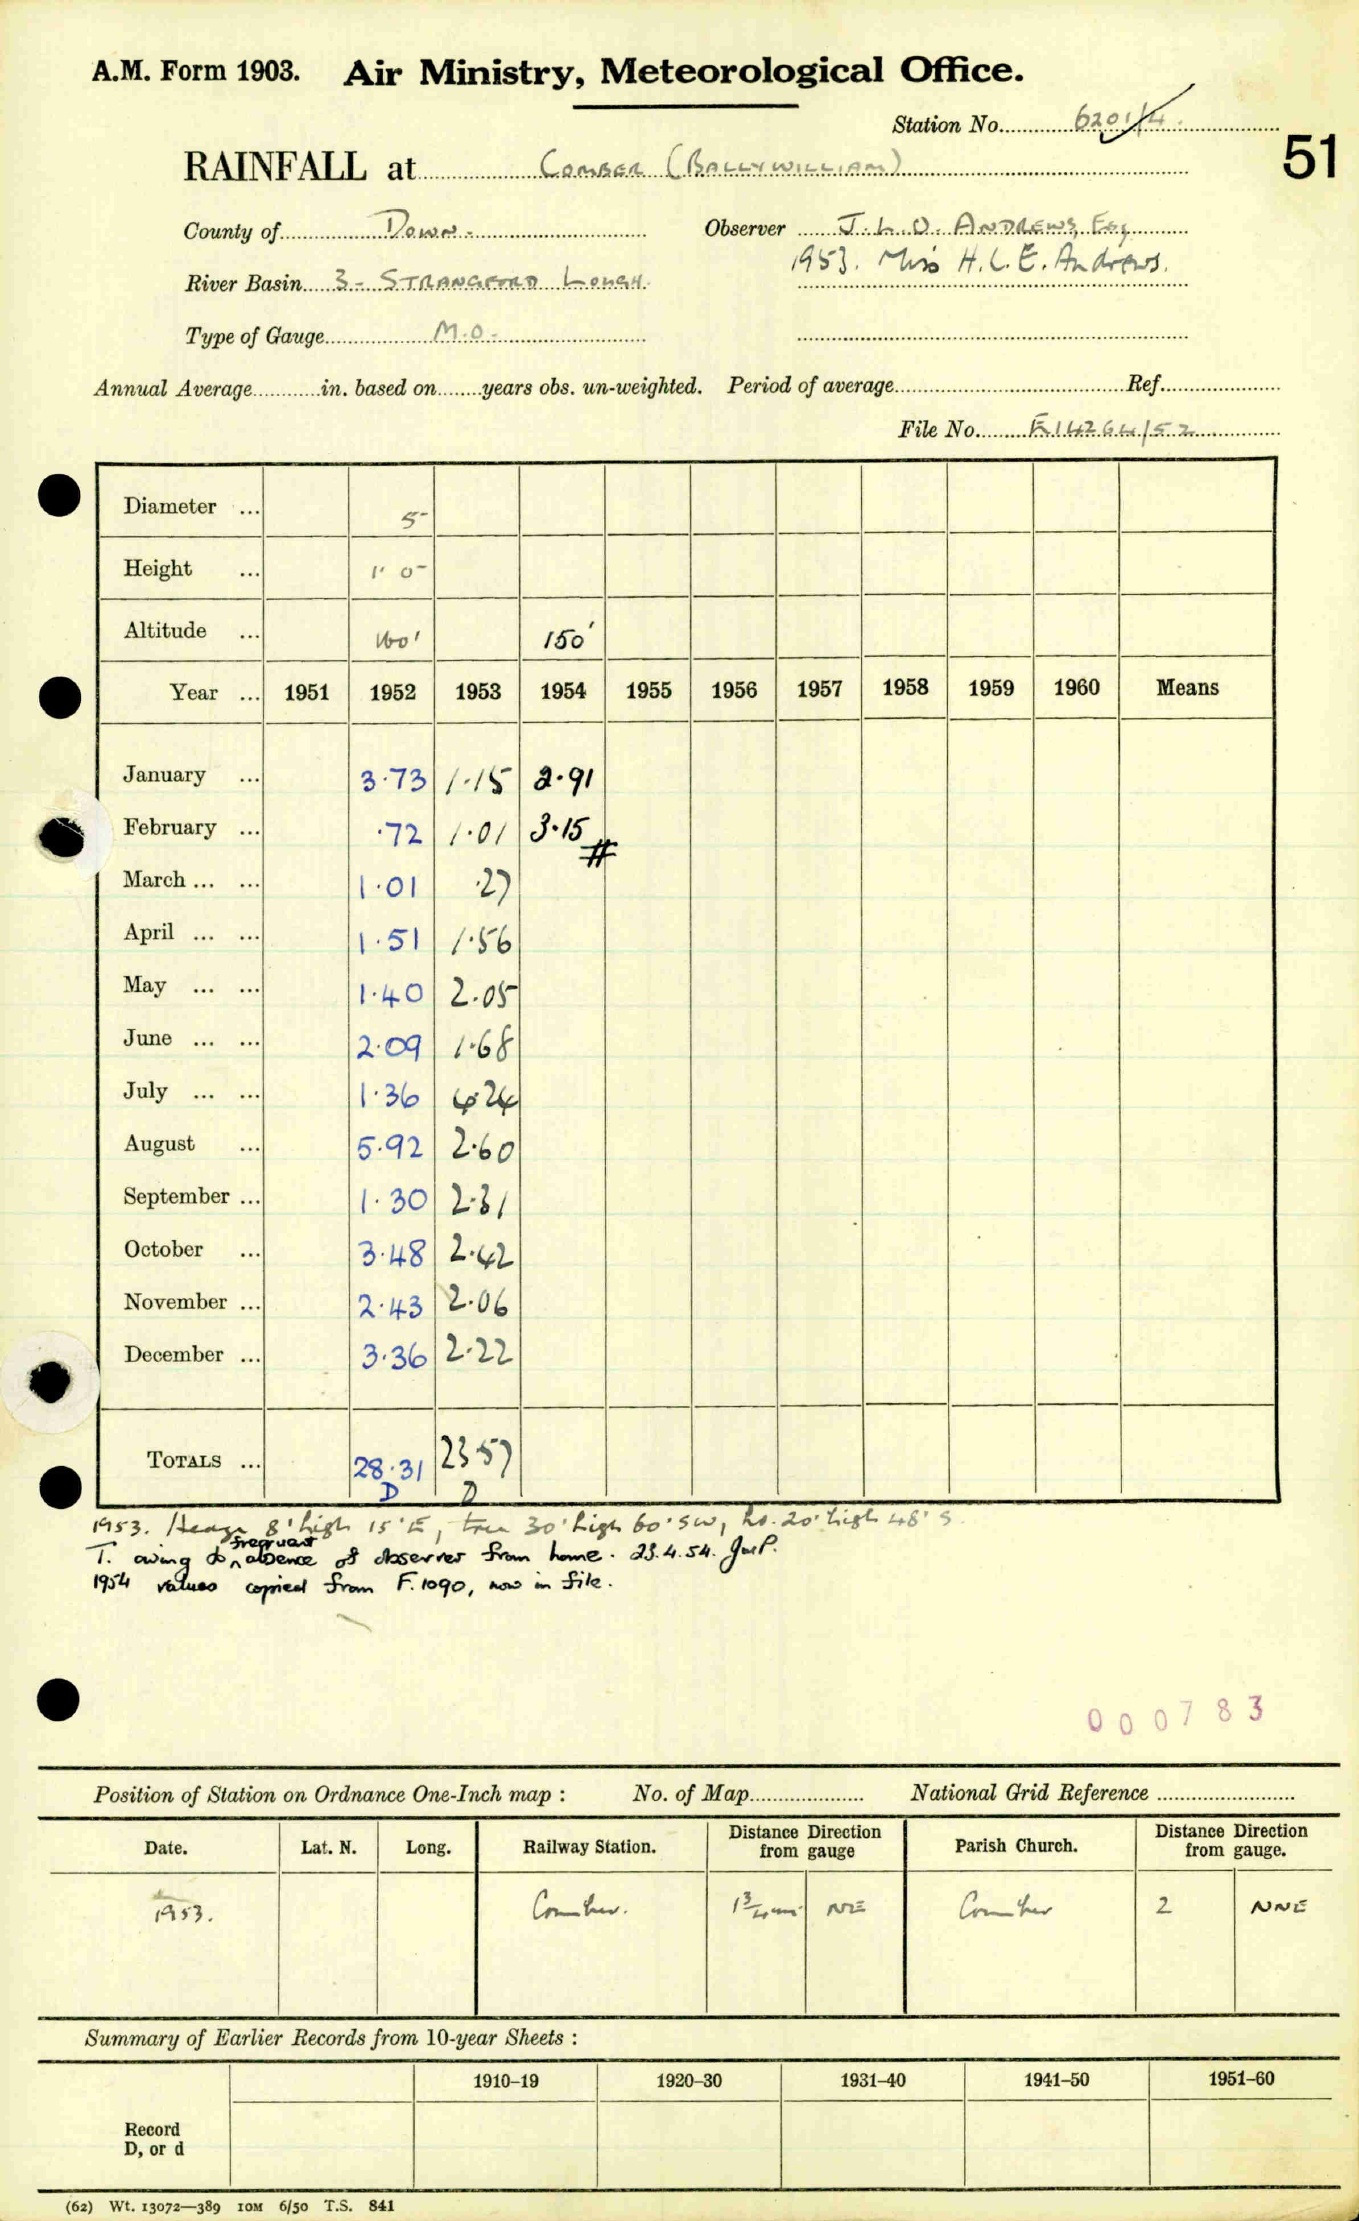 A.M. Form 1903. Air Ministry, Meteorological Office.
Station No. 6201/4.
51
RAINFALL at COMBER (BALLYWILLIAM)
County of DOWN. Observer J.L.O. ANDREWS, Esq
1953. Miss H.L.E. Andrews.
River Basin 3- STRANGFORD LOUGH.
Type of Gauge M.O.
Annual Average in. based on years obs. un-weighted. Period of average Ref.
File No. E14264/52
Diameter ... 5"
Height ... 1' 0"
Altitude ... 160' 150'
Year ... 1951 1952 1953 1954 1955 1956 1957 1958 1959 1960 Means
January ... 3.73 1.15 2.91
February ... .72 1.01 3.15 #
March ... ... 1.01 .27
April ... ... 1.51 1.56
May ... ... 1.40 2.05
June ... ... 2.09 1.68
July ... ... 1.36 4.24
August ... 5.92 2.60
September ... 1.30 2.31
October ... 3.48 2.42
November ... 2.43 2.06
December ... 3.36 2.22
TOTALS ... 28.31 23.57
D D
1953. Hedge 8' high 15' E, tree 30' high 60' SW, ho. 20' high 48' S.
T. owing to frequent absence of observer from home. 23.4.54.
1954 values copied from F.1090, now in file.
000783
Position of Station on Ordnance One-Inch map : No. of Map National Grid Reference
Date. Lat. N. Long. Railway Station. Distance Direction from gauge Parish Church. Distance Direction from gauge.
1953. Comber. 1 3/4 mi NE Comber 2 NNE
Summary of Earlier Records from 10-year Sheets :
1910–19 1920–30 1931–40 1941–50 1951–60
Record
D, or d
(62) Wt. 13072—389 10M 6/50 T.S. 841